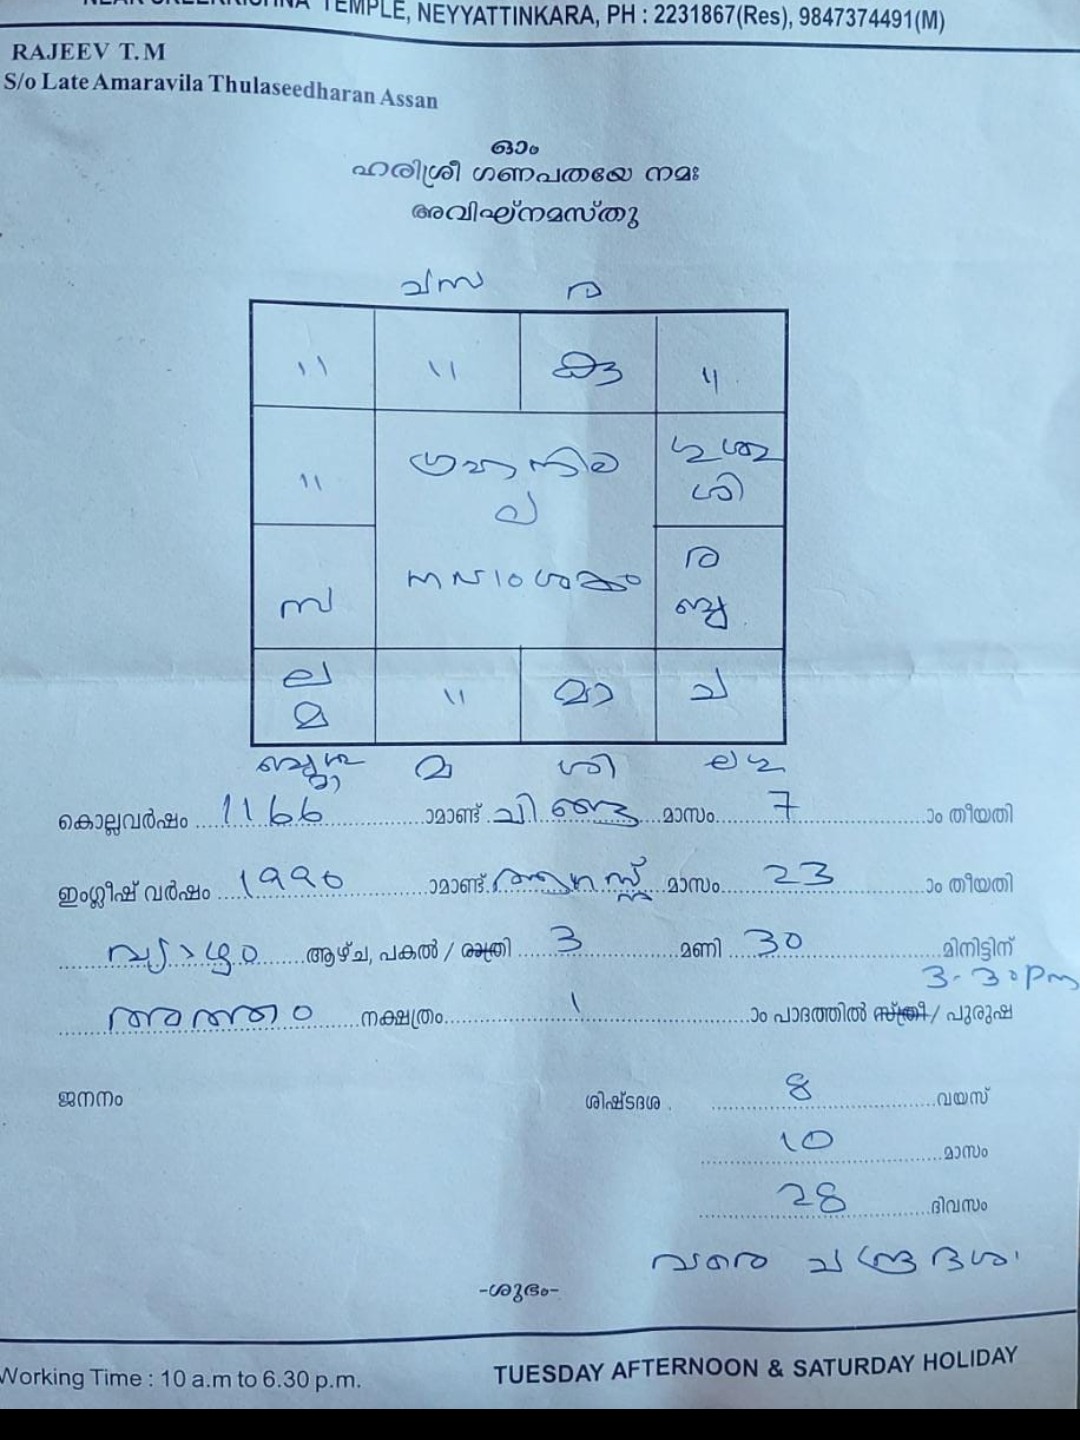 TEMPLE, NEYYATTINKARA, PH : 2231867(Res), 9847374491(M)
RAJEEV T.M
S/o Late Amaravila Thulaseedharan Assan
ഓം
ഹരിശ്രീ ഗണപതയേ നമഃ
അവിഘ്നമസ്തു
ചസ ര
" " കു "
" ഗ്രഹനില ഗു ശു ശി
സ നവാംശകം ര ബു
ല മ " മാ ച
മ ശി ല ഗു
കൊല്ലവർഷം 1166 ാമാണ്ട് ചിങ്ങ മാസം 7 ാം തീയതി
ഇംഗ്ലീഷ് വർഷം 1990 ാമാണ്ട് ആഗസ്റ്റ് മാസം 23 ാം തീയതി
വ്യാഴം ആഴ്ച, പകൽ / രാത്രി 3 മണി 30 മിനിട്ടിന്
3-30pm
അത്തം നക്ഷത്രം 1 ാം പാദത്തിൽ സ്ത്രീ / പുരുഷ
ജനനം ശിഷ്ടദശ 8 വയസ്
10 മാസം
28 ദിവസം
വരെ ചന്ദ്രദശ
-ശുഭം-
Working Time : 10 a.m to 6.30 p.m. TUESDAY AFTERNOON & SATURDAY HOLIDAY